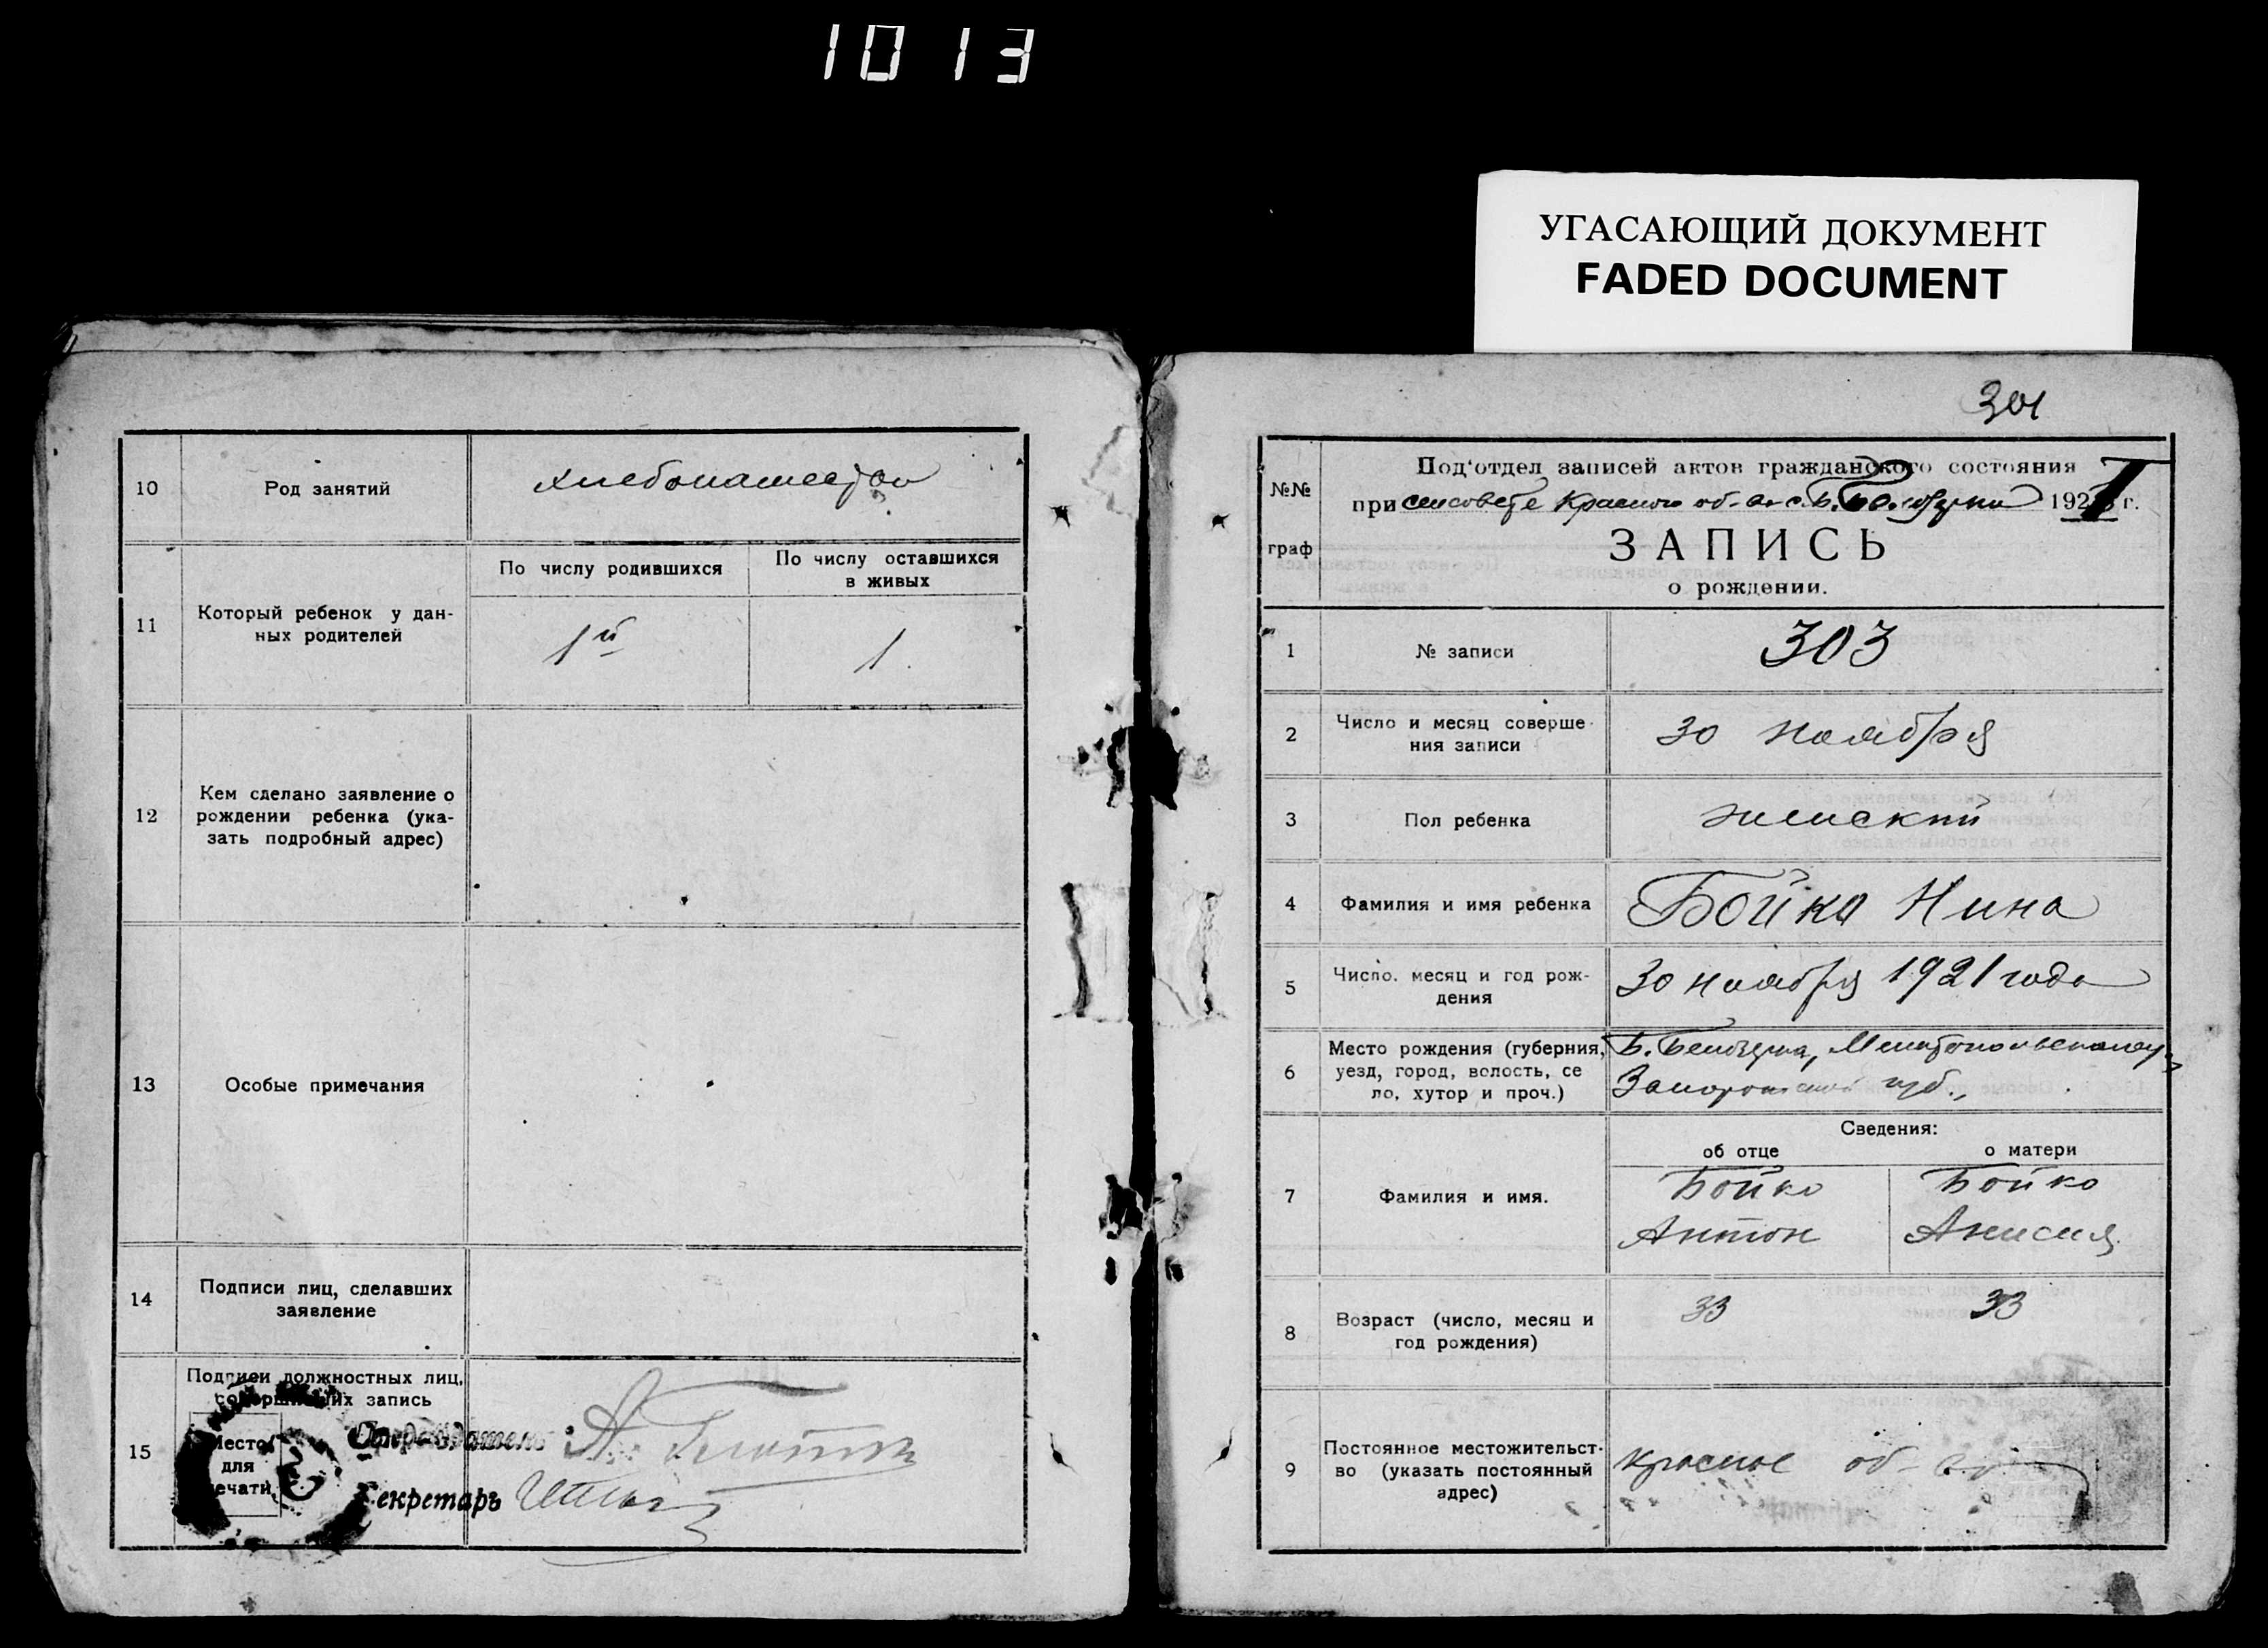 1013
УГАСАЮЩИЙ ДОКУМЕНТ
FADED DOCUMENT
10
Род занятий
хлебопашество
11
Который ребенок у дан-
ных родителей
По числу родившихся
По числу оставшихся
в живых
1й
1
12
Кем сделано заявление о
рождении ребенка (ука-
зать подробный адрес)
13
Особые примечания
14
Подписи лиц, сделавших
заявление
15
Подписи должностных лиц,
совершивших запись
Место
для
печати
Секретарь
301
№№
граф
Под'отдел записей актов гражданского состояния
при сельсовете Красного об-ва с. Б. 1921 г.
ЗАПИСЬ
о рождении.
1
№ записи
303
2
Число и месяц соверше-
ния записи
30 ноября
3
Пол ребенка
женский
4
Фамилия и имя ребенка
Бойко Нина
5
Число. месяц и год рож-
дения
30 ноября 1921 года
6
Место рождения (губерния,
уезд, город, волость, се
ло, хутор и проч.)
Б. Белозерка, Мелитопольского у
Запорожской губ.,
Сведения:
об отце
о матери
7
Фамилия и имя.
Бойко
Антон
Бойко
Анисия
8
Возраст (число, месяц и
год рождения)
33
33
9
Постоянное местожительст-
во (указать постоянный
адрес)
Красное об-во